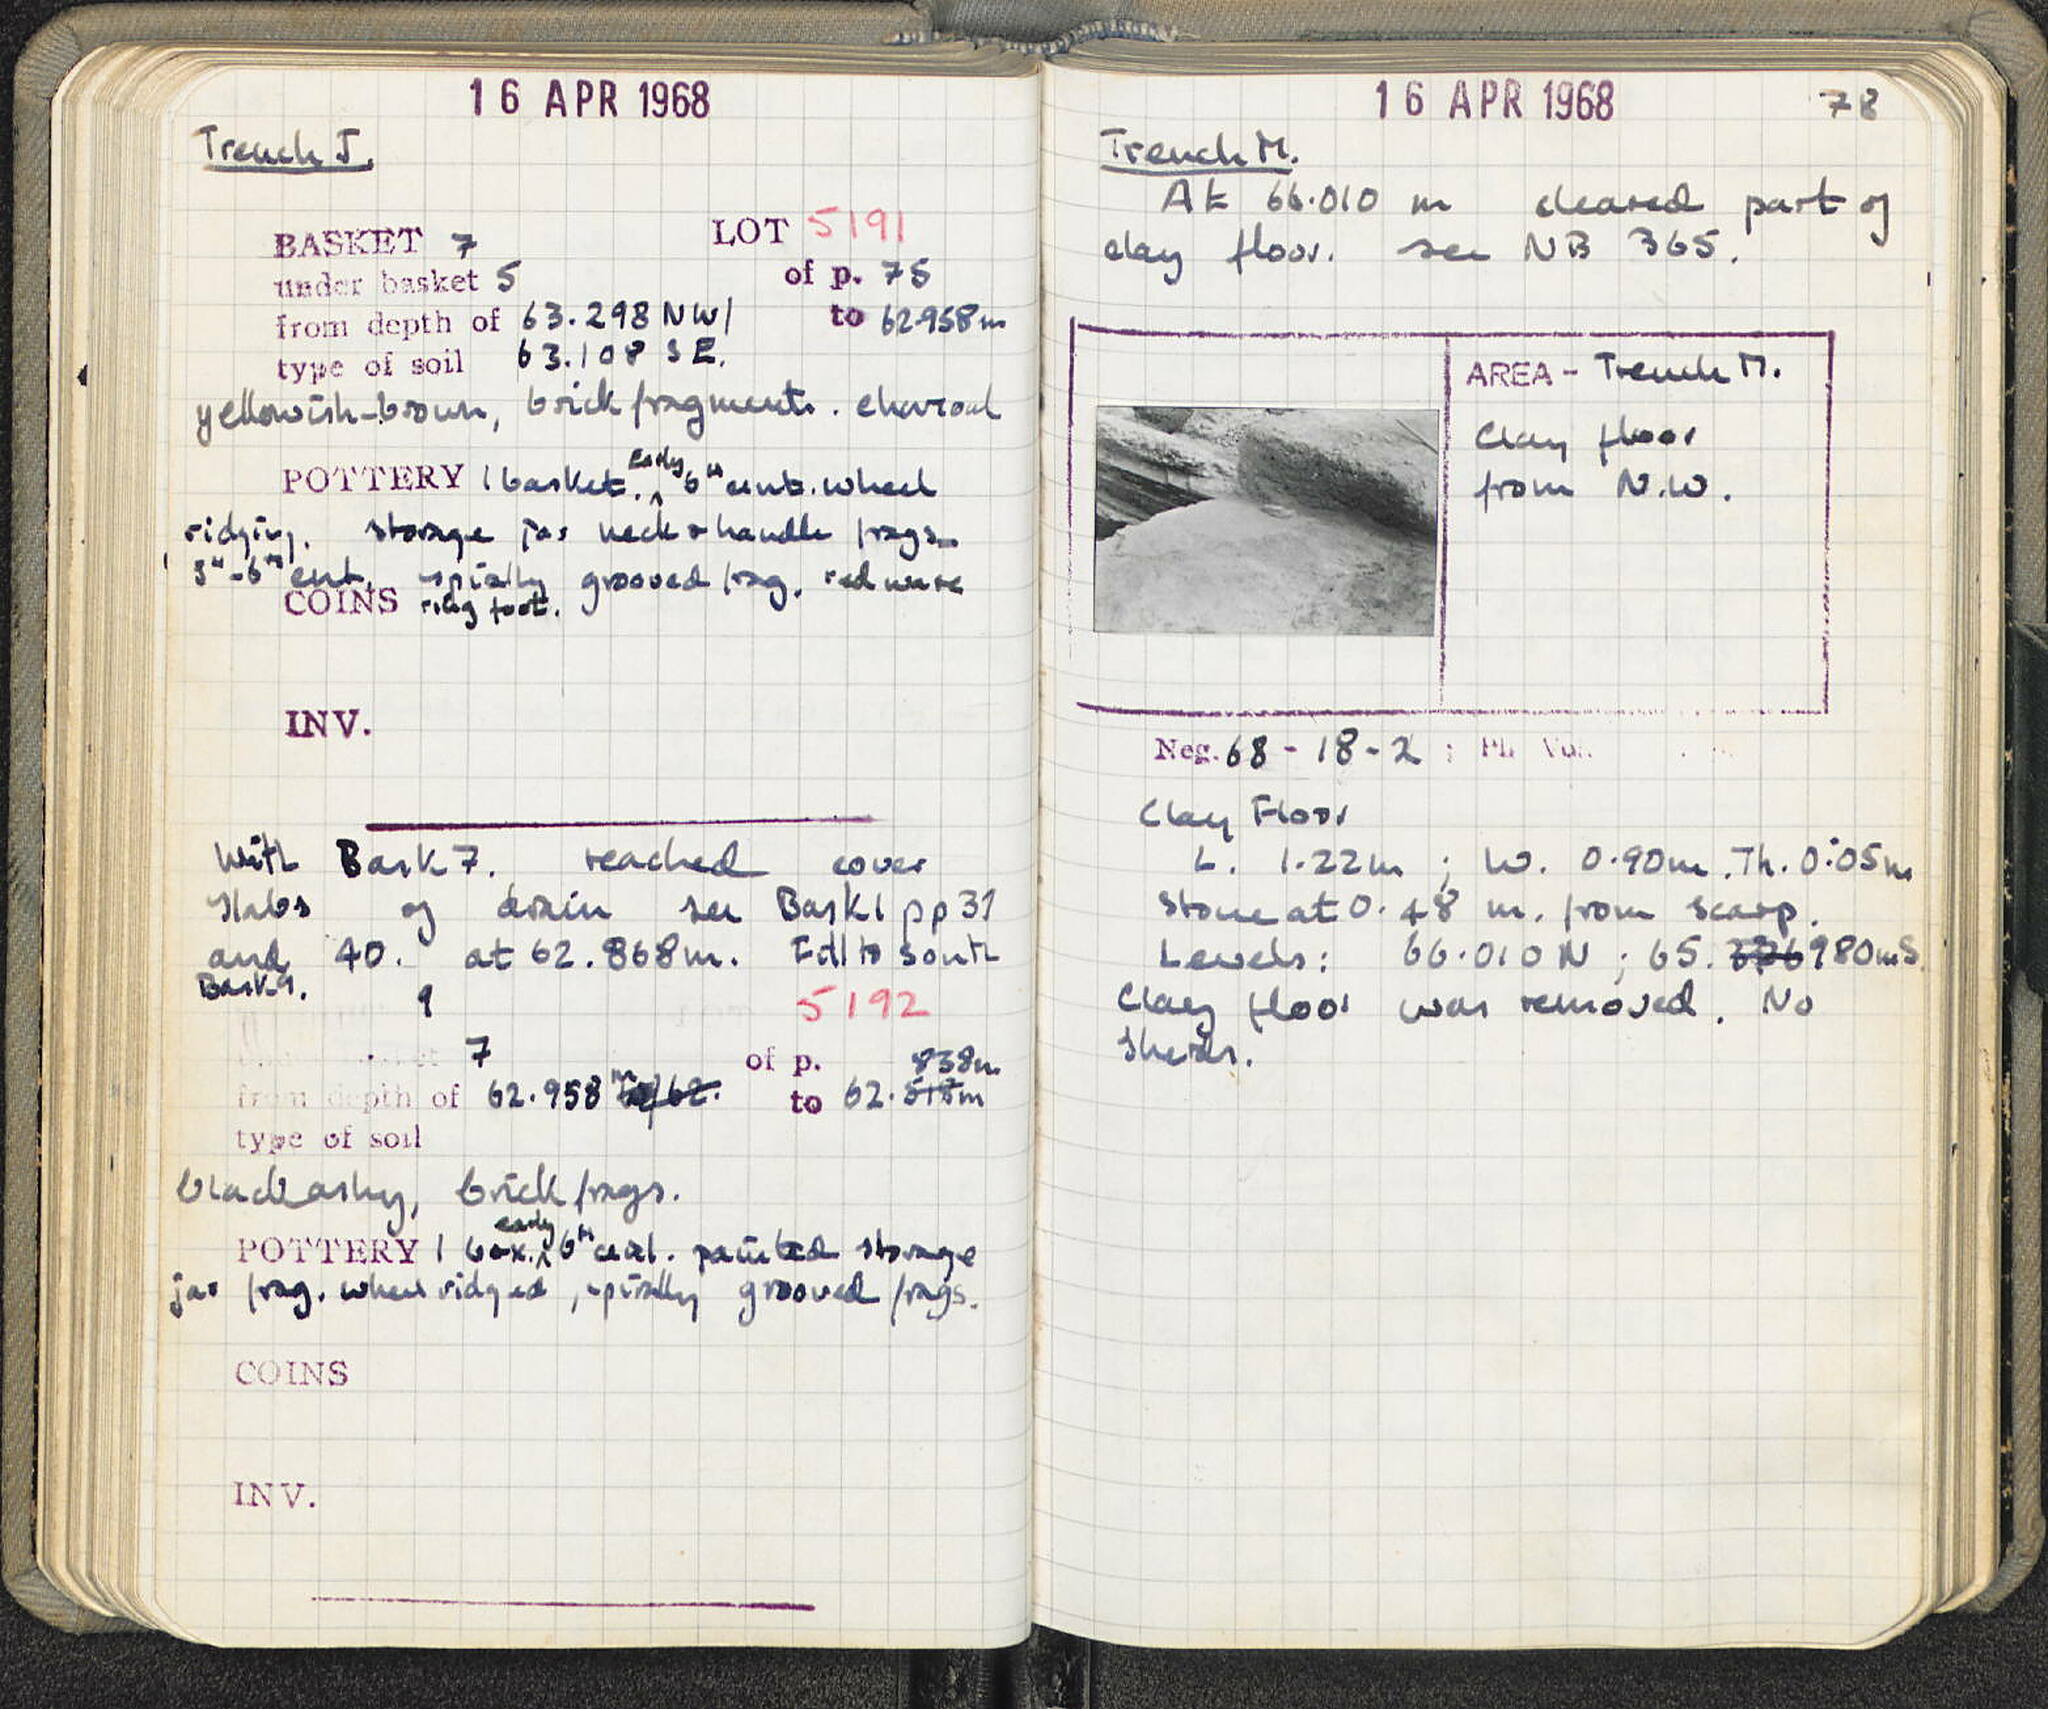 16 APR 1968
Trench J.
BASKET 7 LOT 5191
under basket 5 of p. 75
from depth of 63.298 NW/ to 62.958m
type of soil 63.108 SE.
yellowish-brown, brick fragments. charcoal
POTTERY 1 basket. early 6th cent. wheel
ridging. storage jar neck & handle frags.
5th-6th cent. spirally grooved frag. red ware
COINS ring foot.
INV.
With Bask 7. reached cover
slabs of drain see Bask 1 pp 31
and 40. at 62.868m. Fill to south
Bask 9.
9 5192
7 of p. 838m
from depth of 62.958 m to 62.518m
type of soil
black ashy, brick frags.
POTTERY 1 box. early 6th cent. painted storage
jar frag. wheel ridged, spirally grooved frags.
COINS
INV.
16 APR 1968 78
Trench M.
At 66.010 m cleared part of
clay floor. see NB 365.
AREA - Trench M.
Clay floor
from N.W.
Neg. 68 - 18 - 2 ;
Clay Floor
L. 1.22m ; W. 0.90m. Th. 0.05m
Stone at 0.48 m. from scarp.
Levels: 66.010 N ; 65. 980m S.
Clay floor was removed. No
sherds.